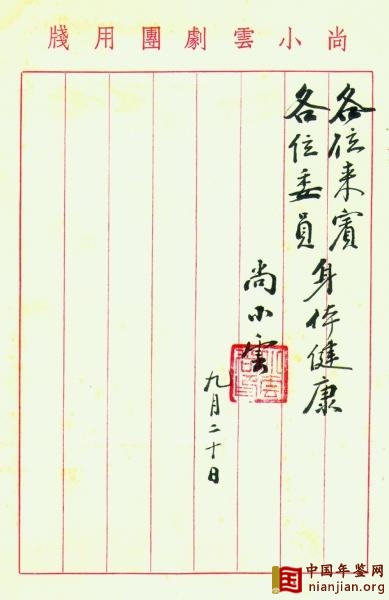 尚小雲劇團用牋
各位来賓
各位委員
身体健康
尚小雲
九月二十日
中国年鉴网
nianjian.org